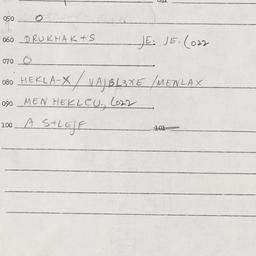 050 O
060 DRUKHAK+S JE: JE. (022
070 O
080 HEKLA-X / VAJBL3XE / MENLAX
090 MEN HEKLCU, (022
100 A S+LEJF 101